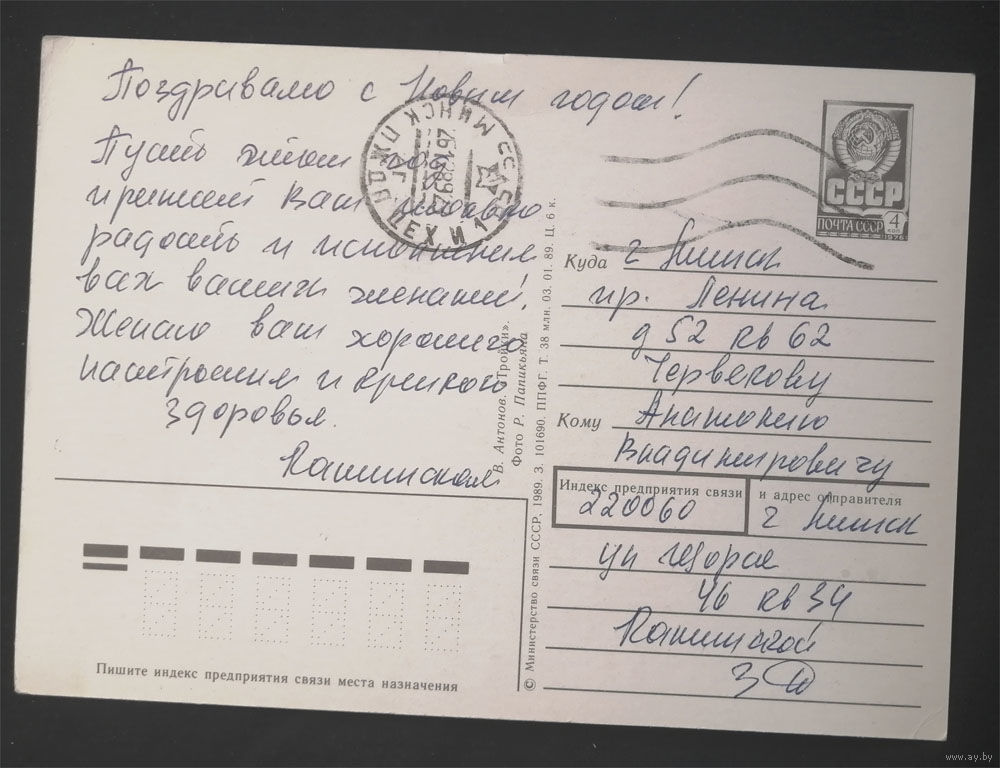 Поздравляю с Новым годом!
Пусть этот год
принесет Вам только
радость и исполнения
всех ваших желаний!
Желаю вам хорошего
настроения и крепкого
здоровья.
МИНСК ПЖДП
СССР
ЦЕХ И 1
СССР
ПОЧТА СССР
4
КОП
1976
Куда г Минск
пр. Ленина
д 52 кв 62
Червекову
Кому Анатолию
Владимировичу
Индекс предприятия связи
и адрес отправителя
220060
г Минск
ул
46 кв 34
Пишите индекс предприятия связи места назначения
В. Антонов. «Тройки».
Фото Р. Папикьяна
© Министерство связи СССР, 1989. З. 101690. ППФГ. Т. 38 млн. 03. 01. 89. Ц. 6 к.
www.ay.by